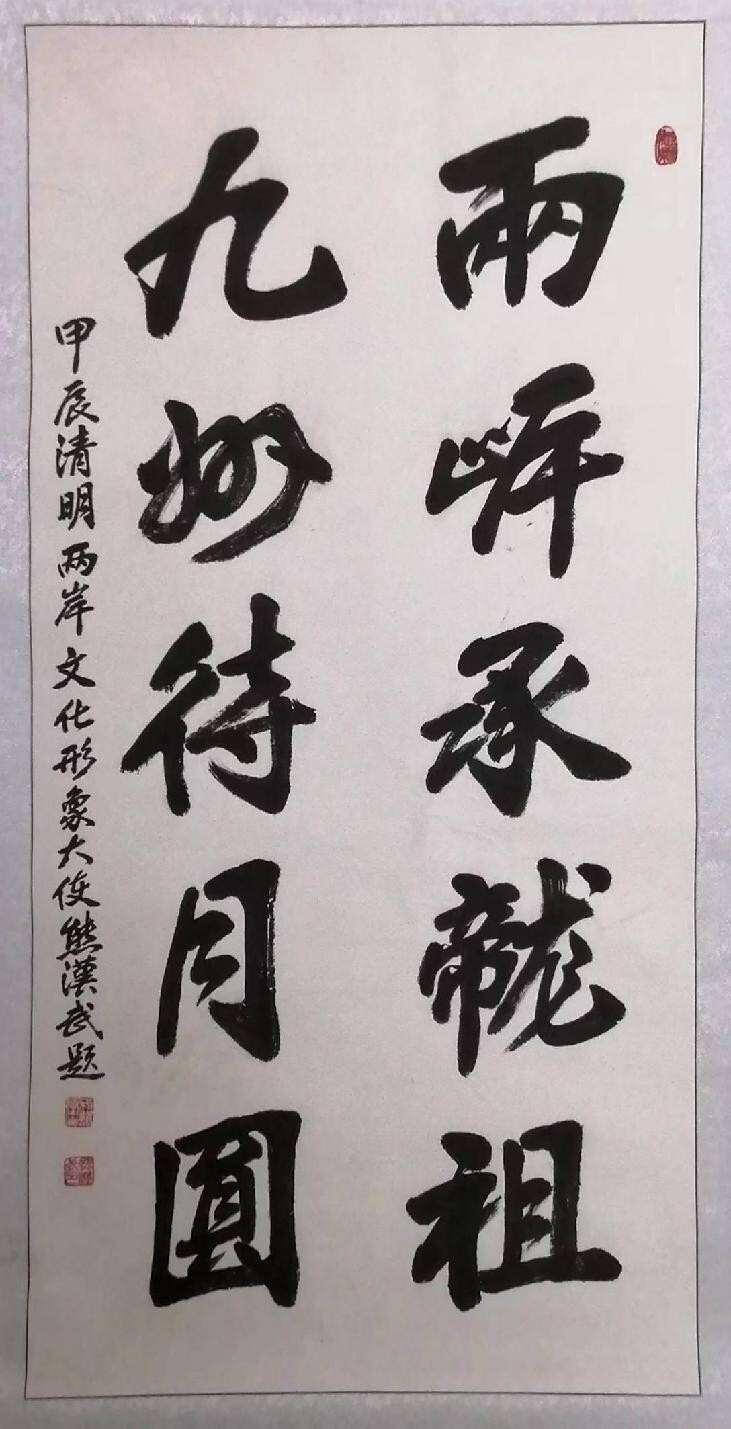 兩岸承龍祖
九州待月圓
甲辰清明两岸文化形象大使熊漢武题